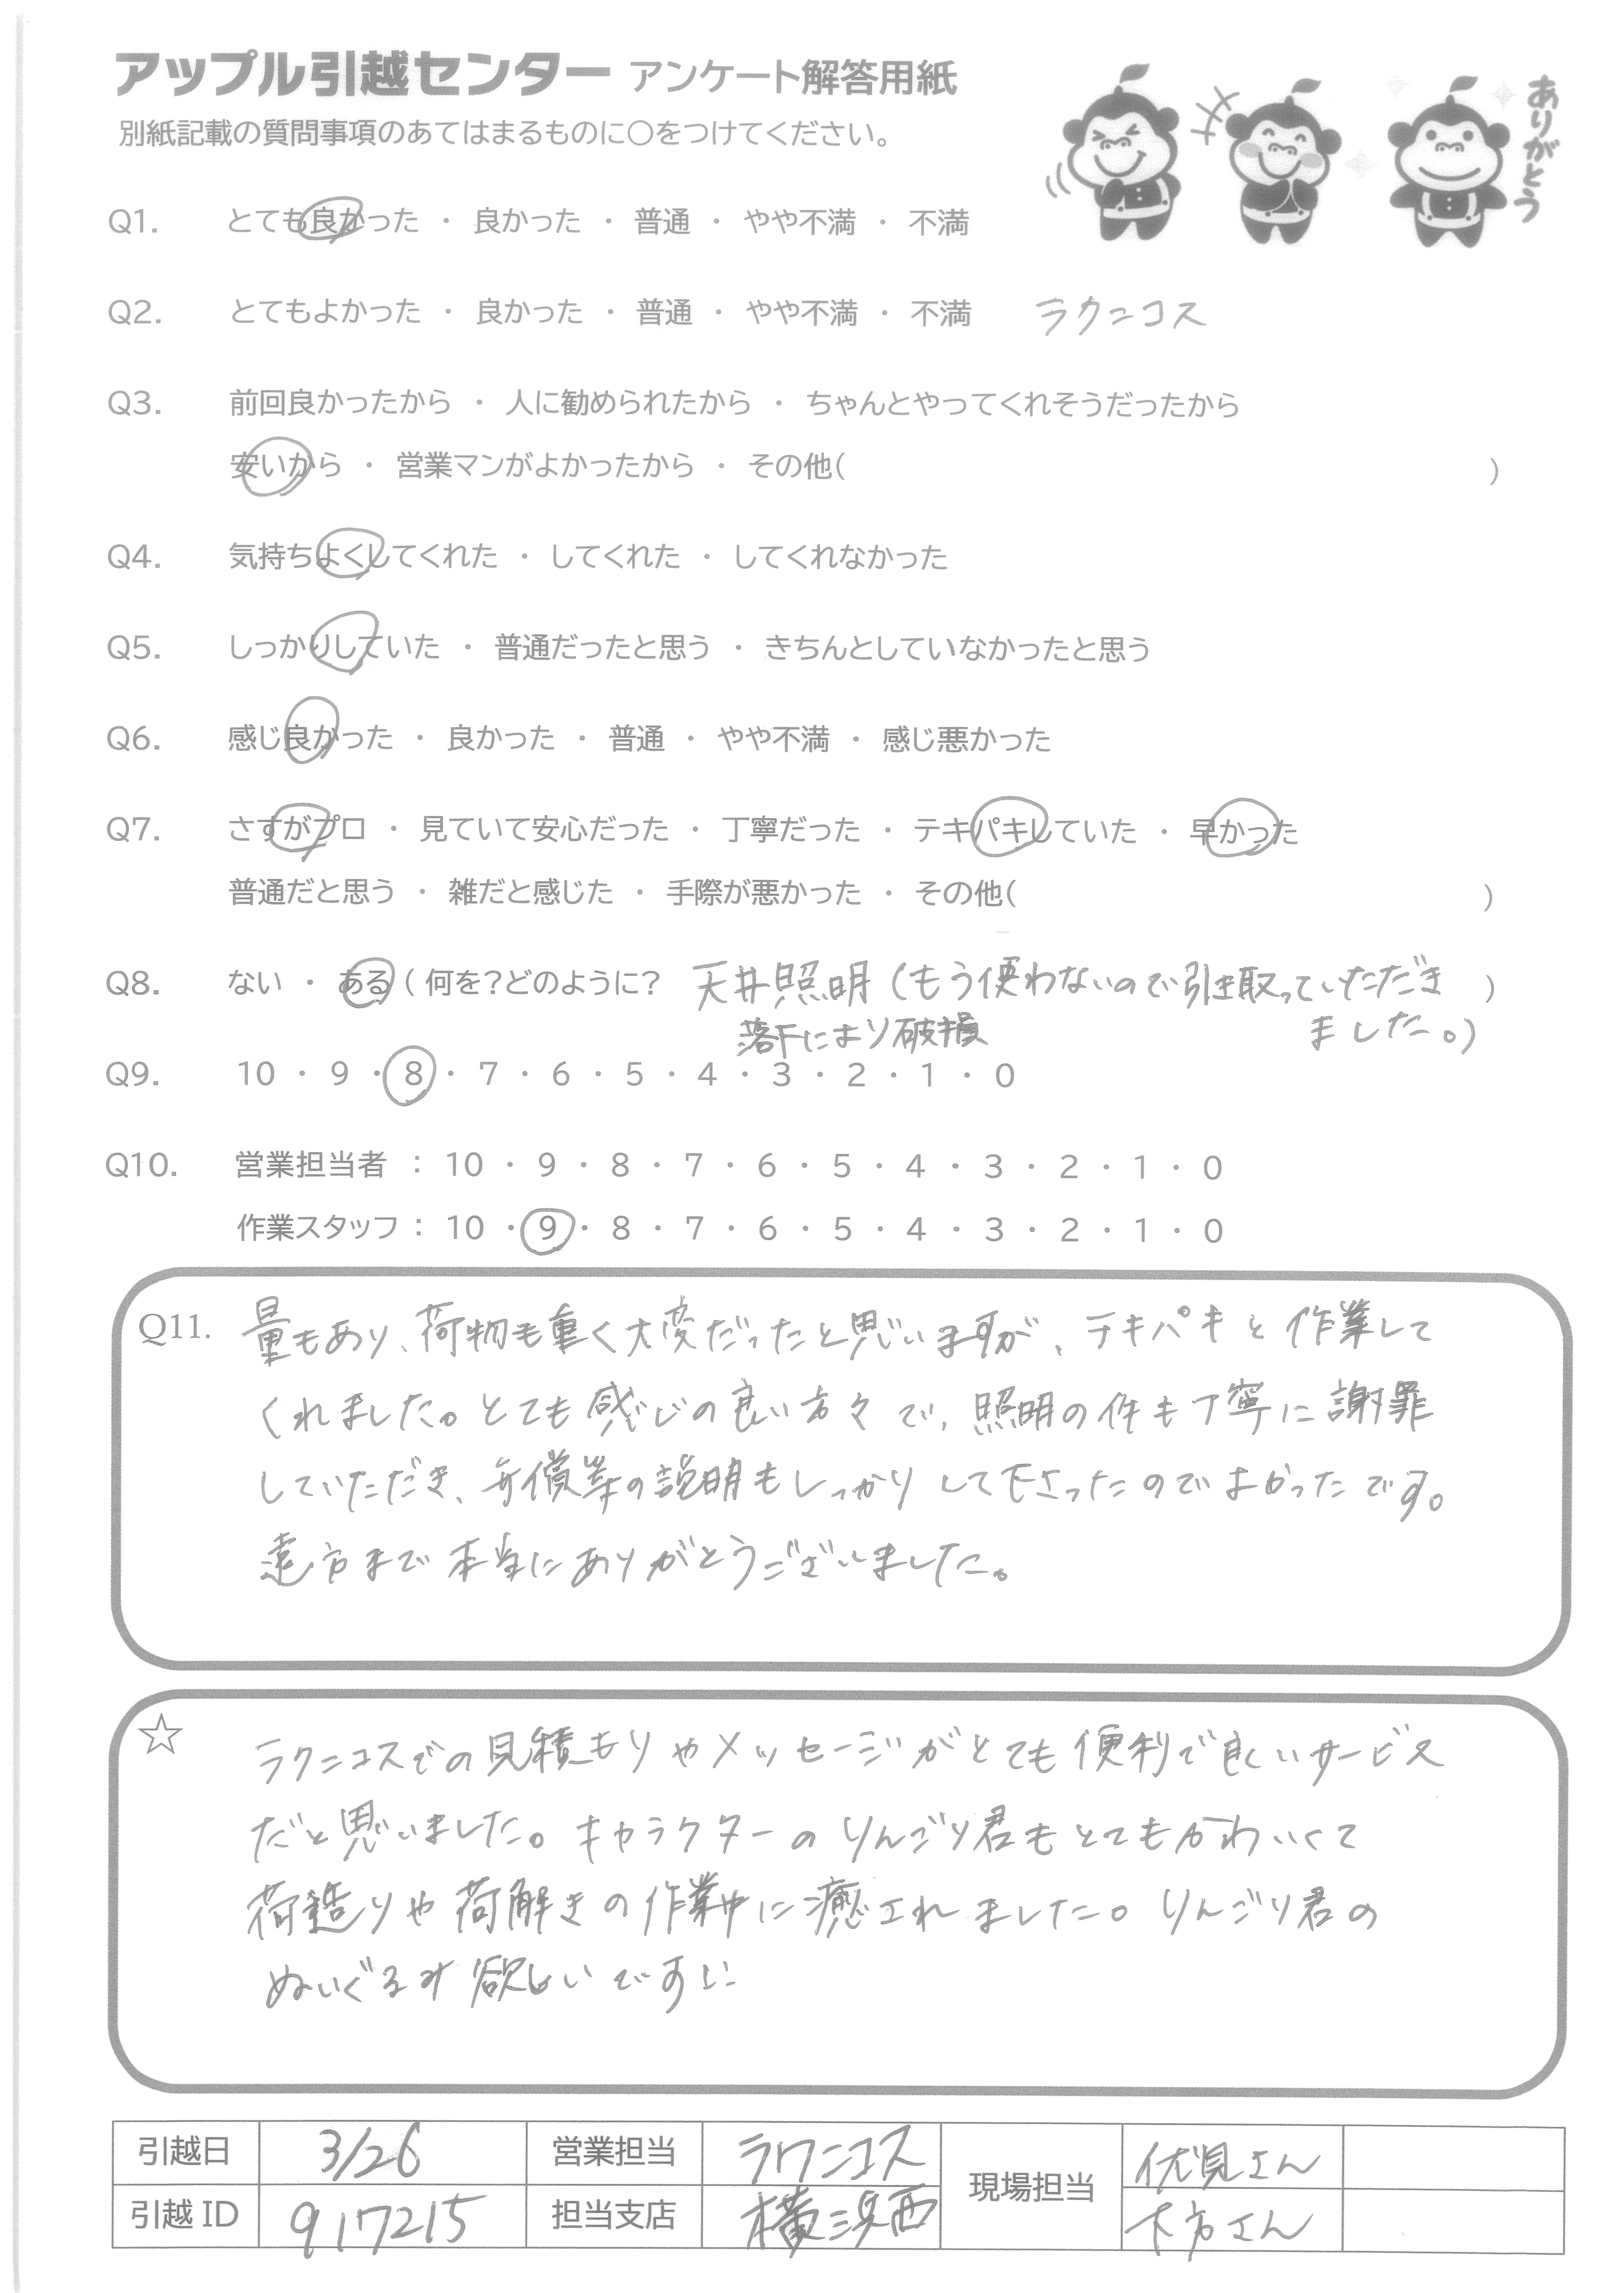 アップル引越センター アンケート解答用紙
ありがとう
別紙記載の質問事項のあてはまるものに○をつけてください。
Q1. とても良かった ・ 良かった ・ 普通 ・ やや不満 ・ 不満
Q2. とてもよかった ・ 良かった ・ 普通 ・ やや不満 ・ 不満 ラクニコス
Q3. 前回良かったから ・ 人に勧められたから ・ ちゃんとやってくれそうだったから
安いから ・ 営業マンがよかったから ・ その他( )
Q4. 気持ちよくしてくれた ・ してくれた ・ してくれなかった
Q5. しっかりしていた ・ 普通だったと思う ・ きちんとしていなかったと思う
Q6. 感じ良かった ・ 良かった ・ 普通 ・ やや不満 ・ 感じ悪かった
Q7. さすがプロ ・ 見ていて安心だった ・ 丁寧だった ・ テキパキしていた ・ 早かった
普通だと思う ・ 雑だと感じた ・ 手際が悪かった ・ その他( )
Q8. ない ・ ある ( 何を?どのように? 天井照明(もう使わないので引き取っていただき )
落下により破損 ました。)
Q9. 10 ・ 9 ・ 8 ・ 7 ・ 6 ・ 5 ・ 4 ・ 3 ・ 2 ・ 1 ・ 0
Q10. 営業担当者 : 10 ・ 9 ・ 8 ・ 7 ・ 6 ・ 5 ・ 4 ・ 3 ・ 2 ・ 1 ・ 0
作業スタッフ : 10 ・ 9 ・ 8 ・ 7 ・ 6 ・ 5 ・ 4 ・ 3 ・ 2 ・ 1 ・ 0
Q11. 量もあり、荷物も重く大変だったと思いますが、テキパキと作業して
くれました。とても感じの良い方々で、照明の件も丁寧に謝罪
していただき、弁償等の説明もしっかりして下さったのでよかったです。
遠方まで本当にありがとうございました。
☆ ラクニコスでの見積もりやメッセージがとても便利で良いサービス
だと思いました。キャラクターのりんごり君もとてもかわいくて
荷造りや荷解きの作業中に癒されました。りんごり君の
ぬいぐるみ欲しいです
引越日 3/26 営業担当 ラクニコス 現場担当 伏見さん
引越ID 917215 担当支店 横浜西 大方さん